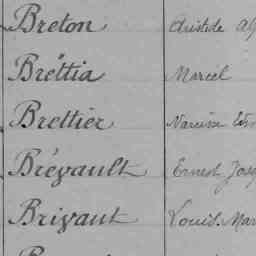 Breton Aristide
Brettia Marcel
Brettier Narcisse
Brégault Ernest
Brigant Louis Mar